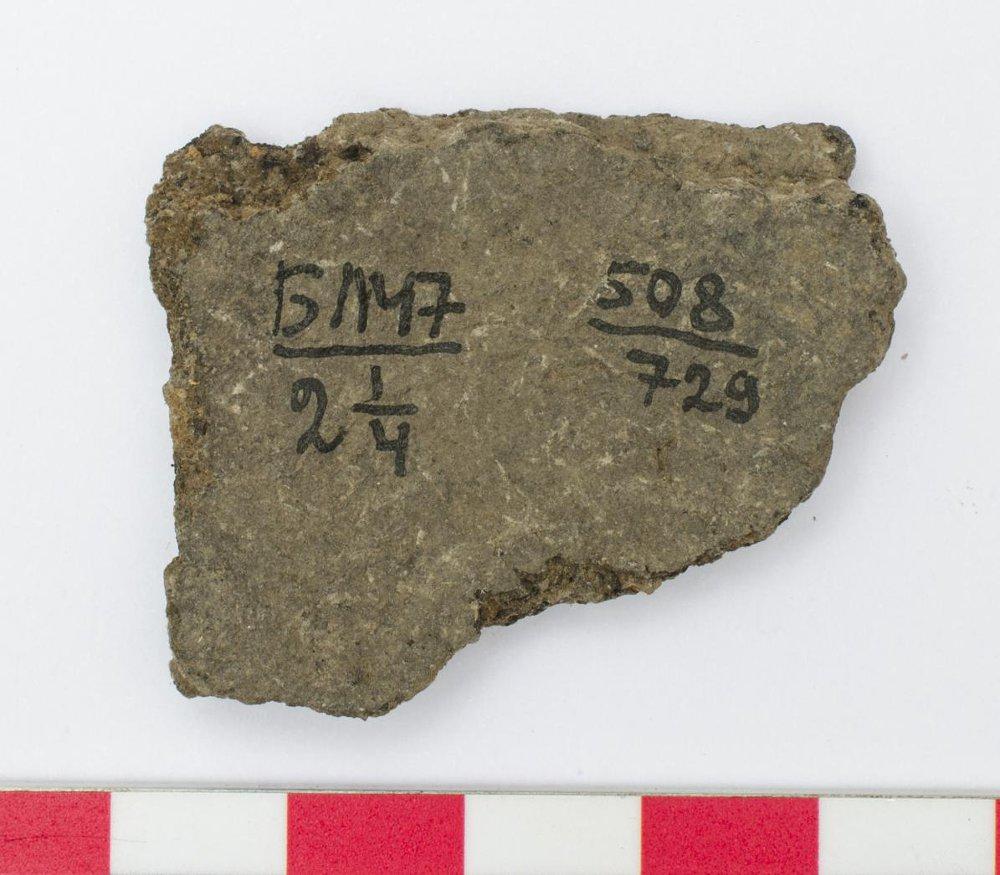 БМ47
2 1/4
508
729